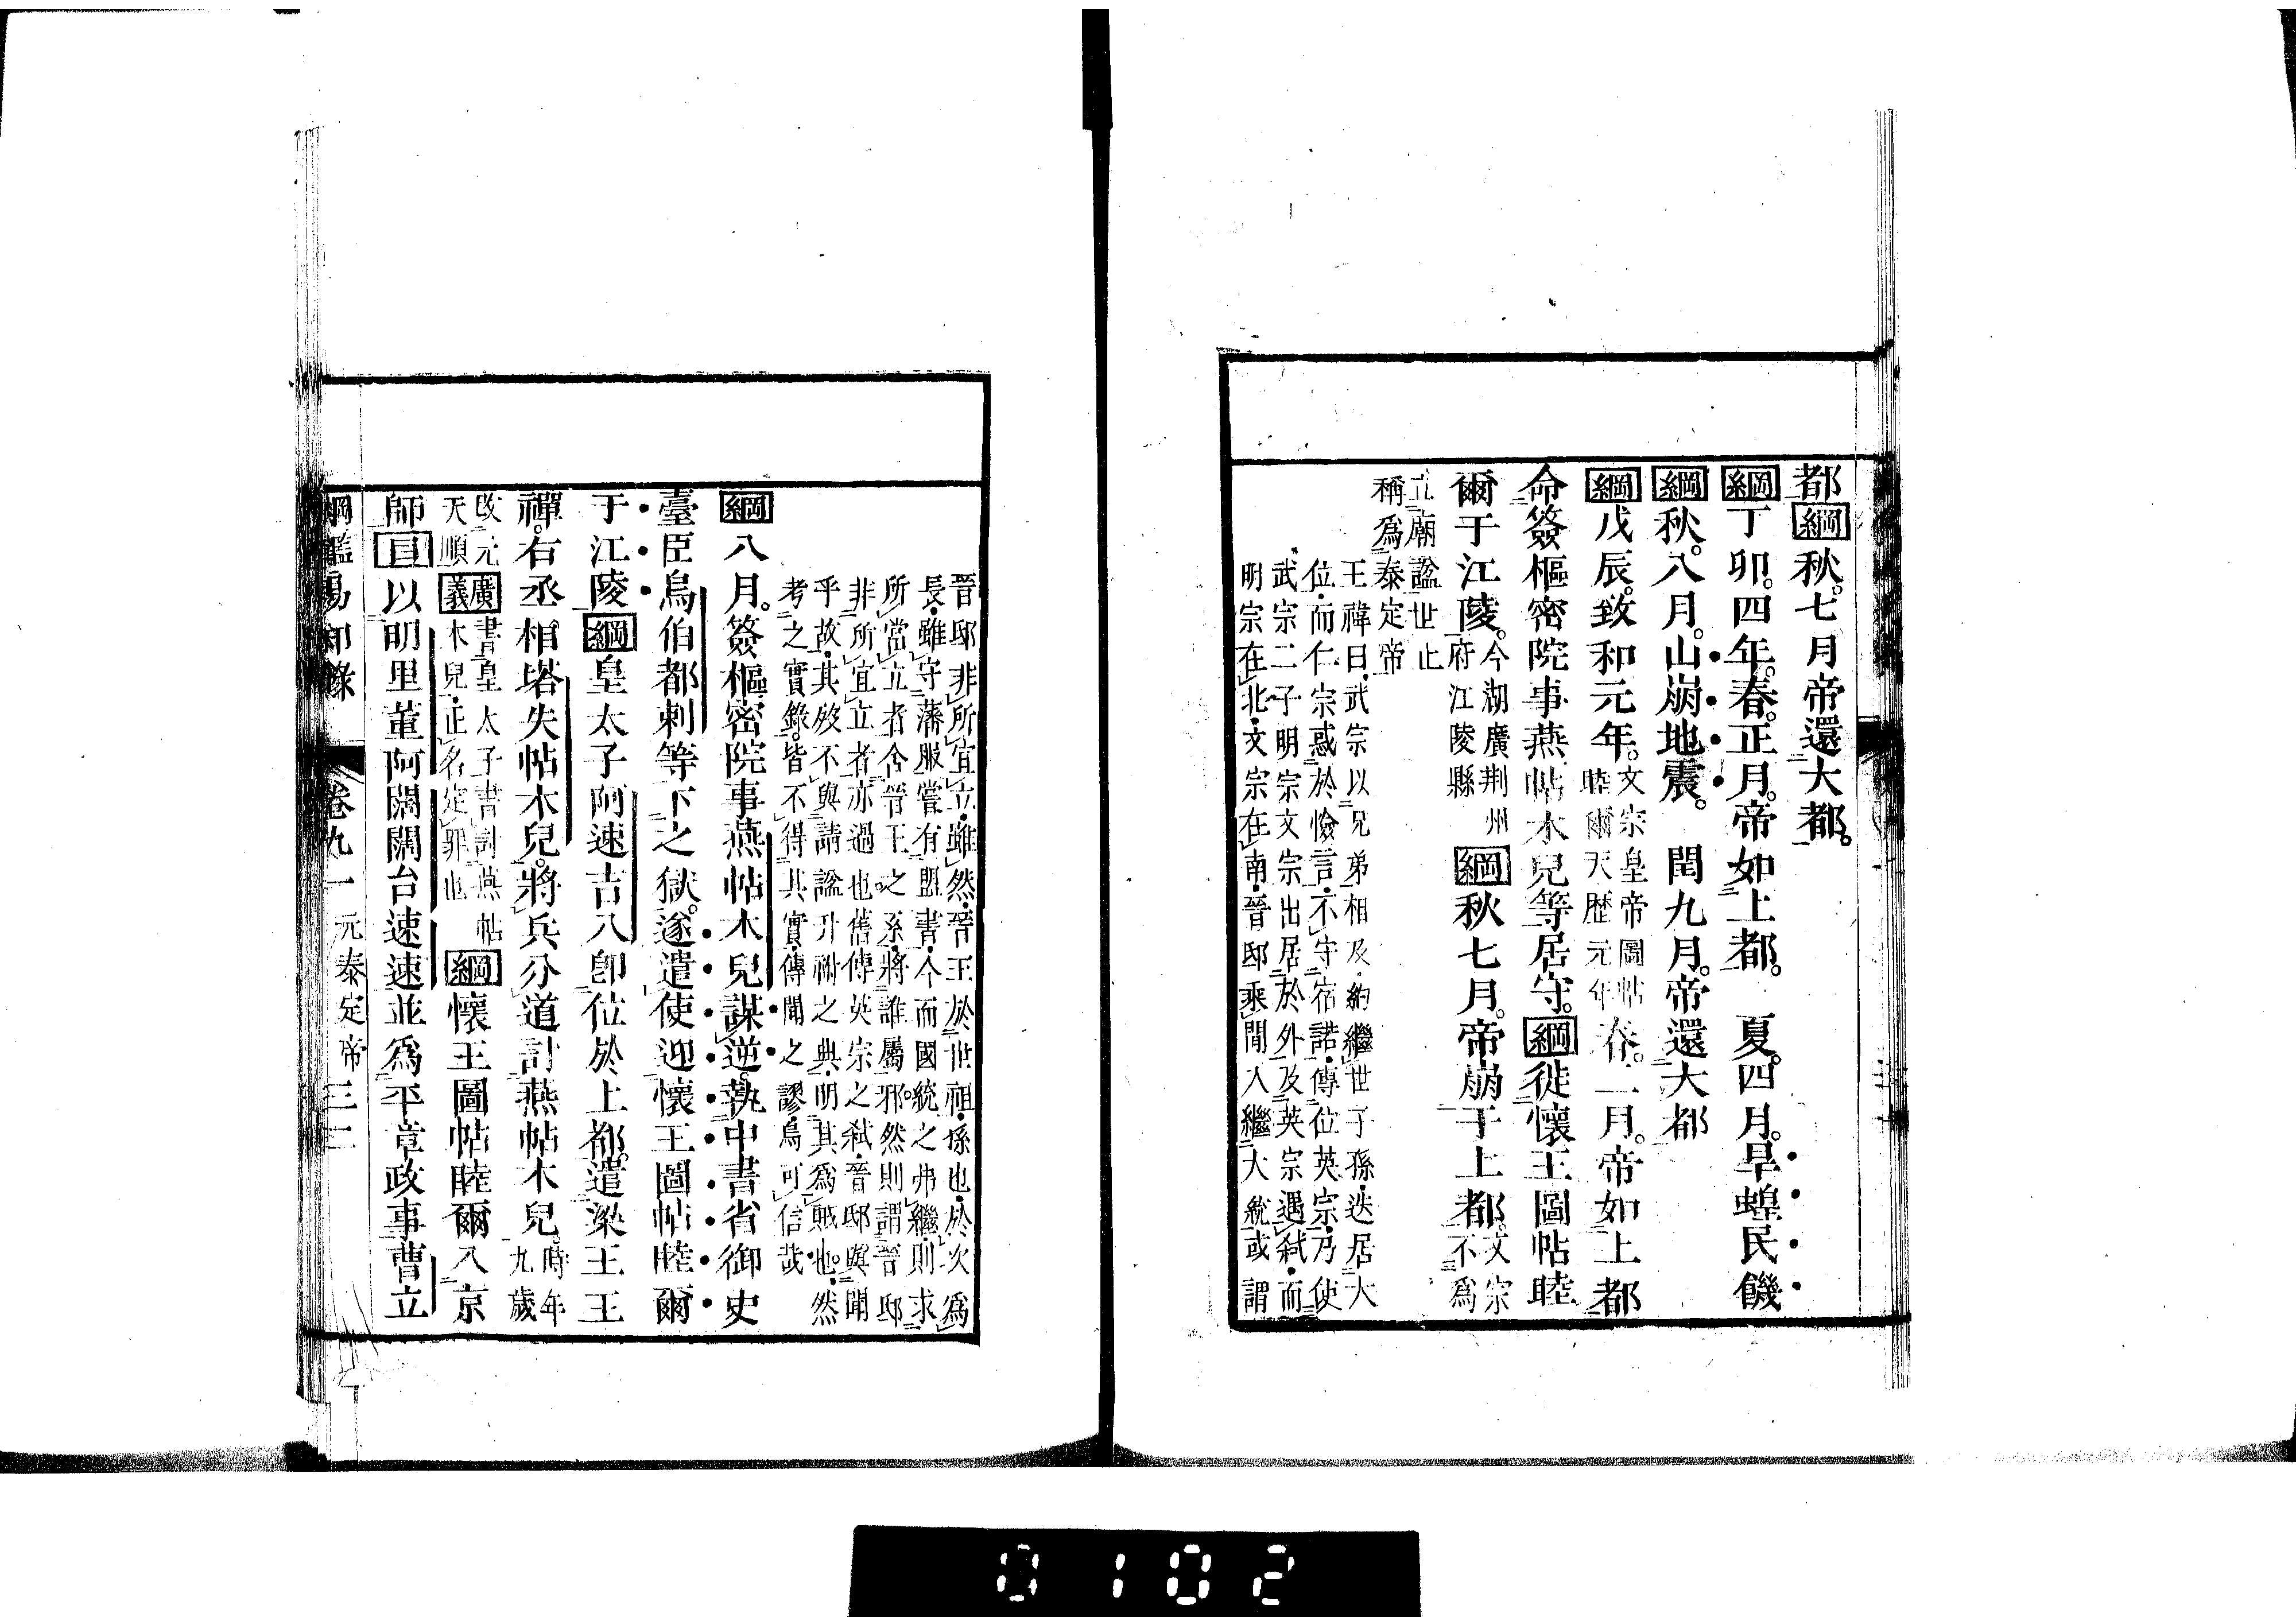 都綱秋七月帝還大都
綱丁卯四年春正月帝如上都 夏四月旱蝗民饑
綱秋八月山崩地震 閏九月帝還大都
綱戊辰致和元年文宗皇帝圖帖睦爾天歷元年春二月帝如上都
命簽樞密院事燕帖木兒等居守綱徙懷王圖帖睦
爾于江陵今湖廣荆州府江陵縣綱秋七月帝崩于上都文宗不爲
立廟諡世止稱爲泰定帝
王禕曰武宗以兄弟相及約繼世子孫迭居大
位而仁宗惑於憸言不守宿諾傳位英宗乃使
武宗二子明宗文宗出居於外及英宗遇弑而
明宗在北文宗在南晉邸乘間入繼大統或謂
晉邸非所宜立雖然晉王於世祖孫也於次爲
長雖守藩服嘗有盟書今而國統之弗繼則求
所當立者舍晉王之孫將誰屬邪然則謂晉邸
非所宜立者亦過也舊傳英宗之弑晉邸與聞
乎故其歿不與請諡升祔之典明其爲賊也然
考之實錄皆不得其實傳聞之謬烏可信哉
綱八月簽樞密院事燕帖木兒謀逆執中書省御史
臺臣烏伯都剌等下之獄遂遣使迎懷王圖帖睦爾
于江陵綱皇太子阿速吉八卽位於上都遣梁王王
禪右丞相塔失帖木兒將兵分道討燕帖木兒時年九歲
改元天順廣義書皇太子書討燕帖木兒正名定罪也綱懷王圖帖睦爾入京
師目以明里董阿闊闊台速速並爲平章政事曹立
綱鑑易知錄 卷九一 元泰定帝 三二
0102